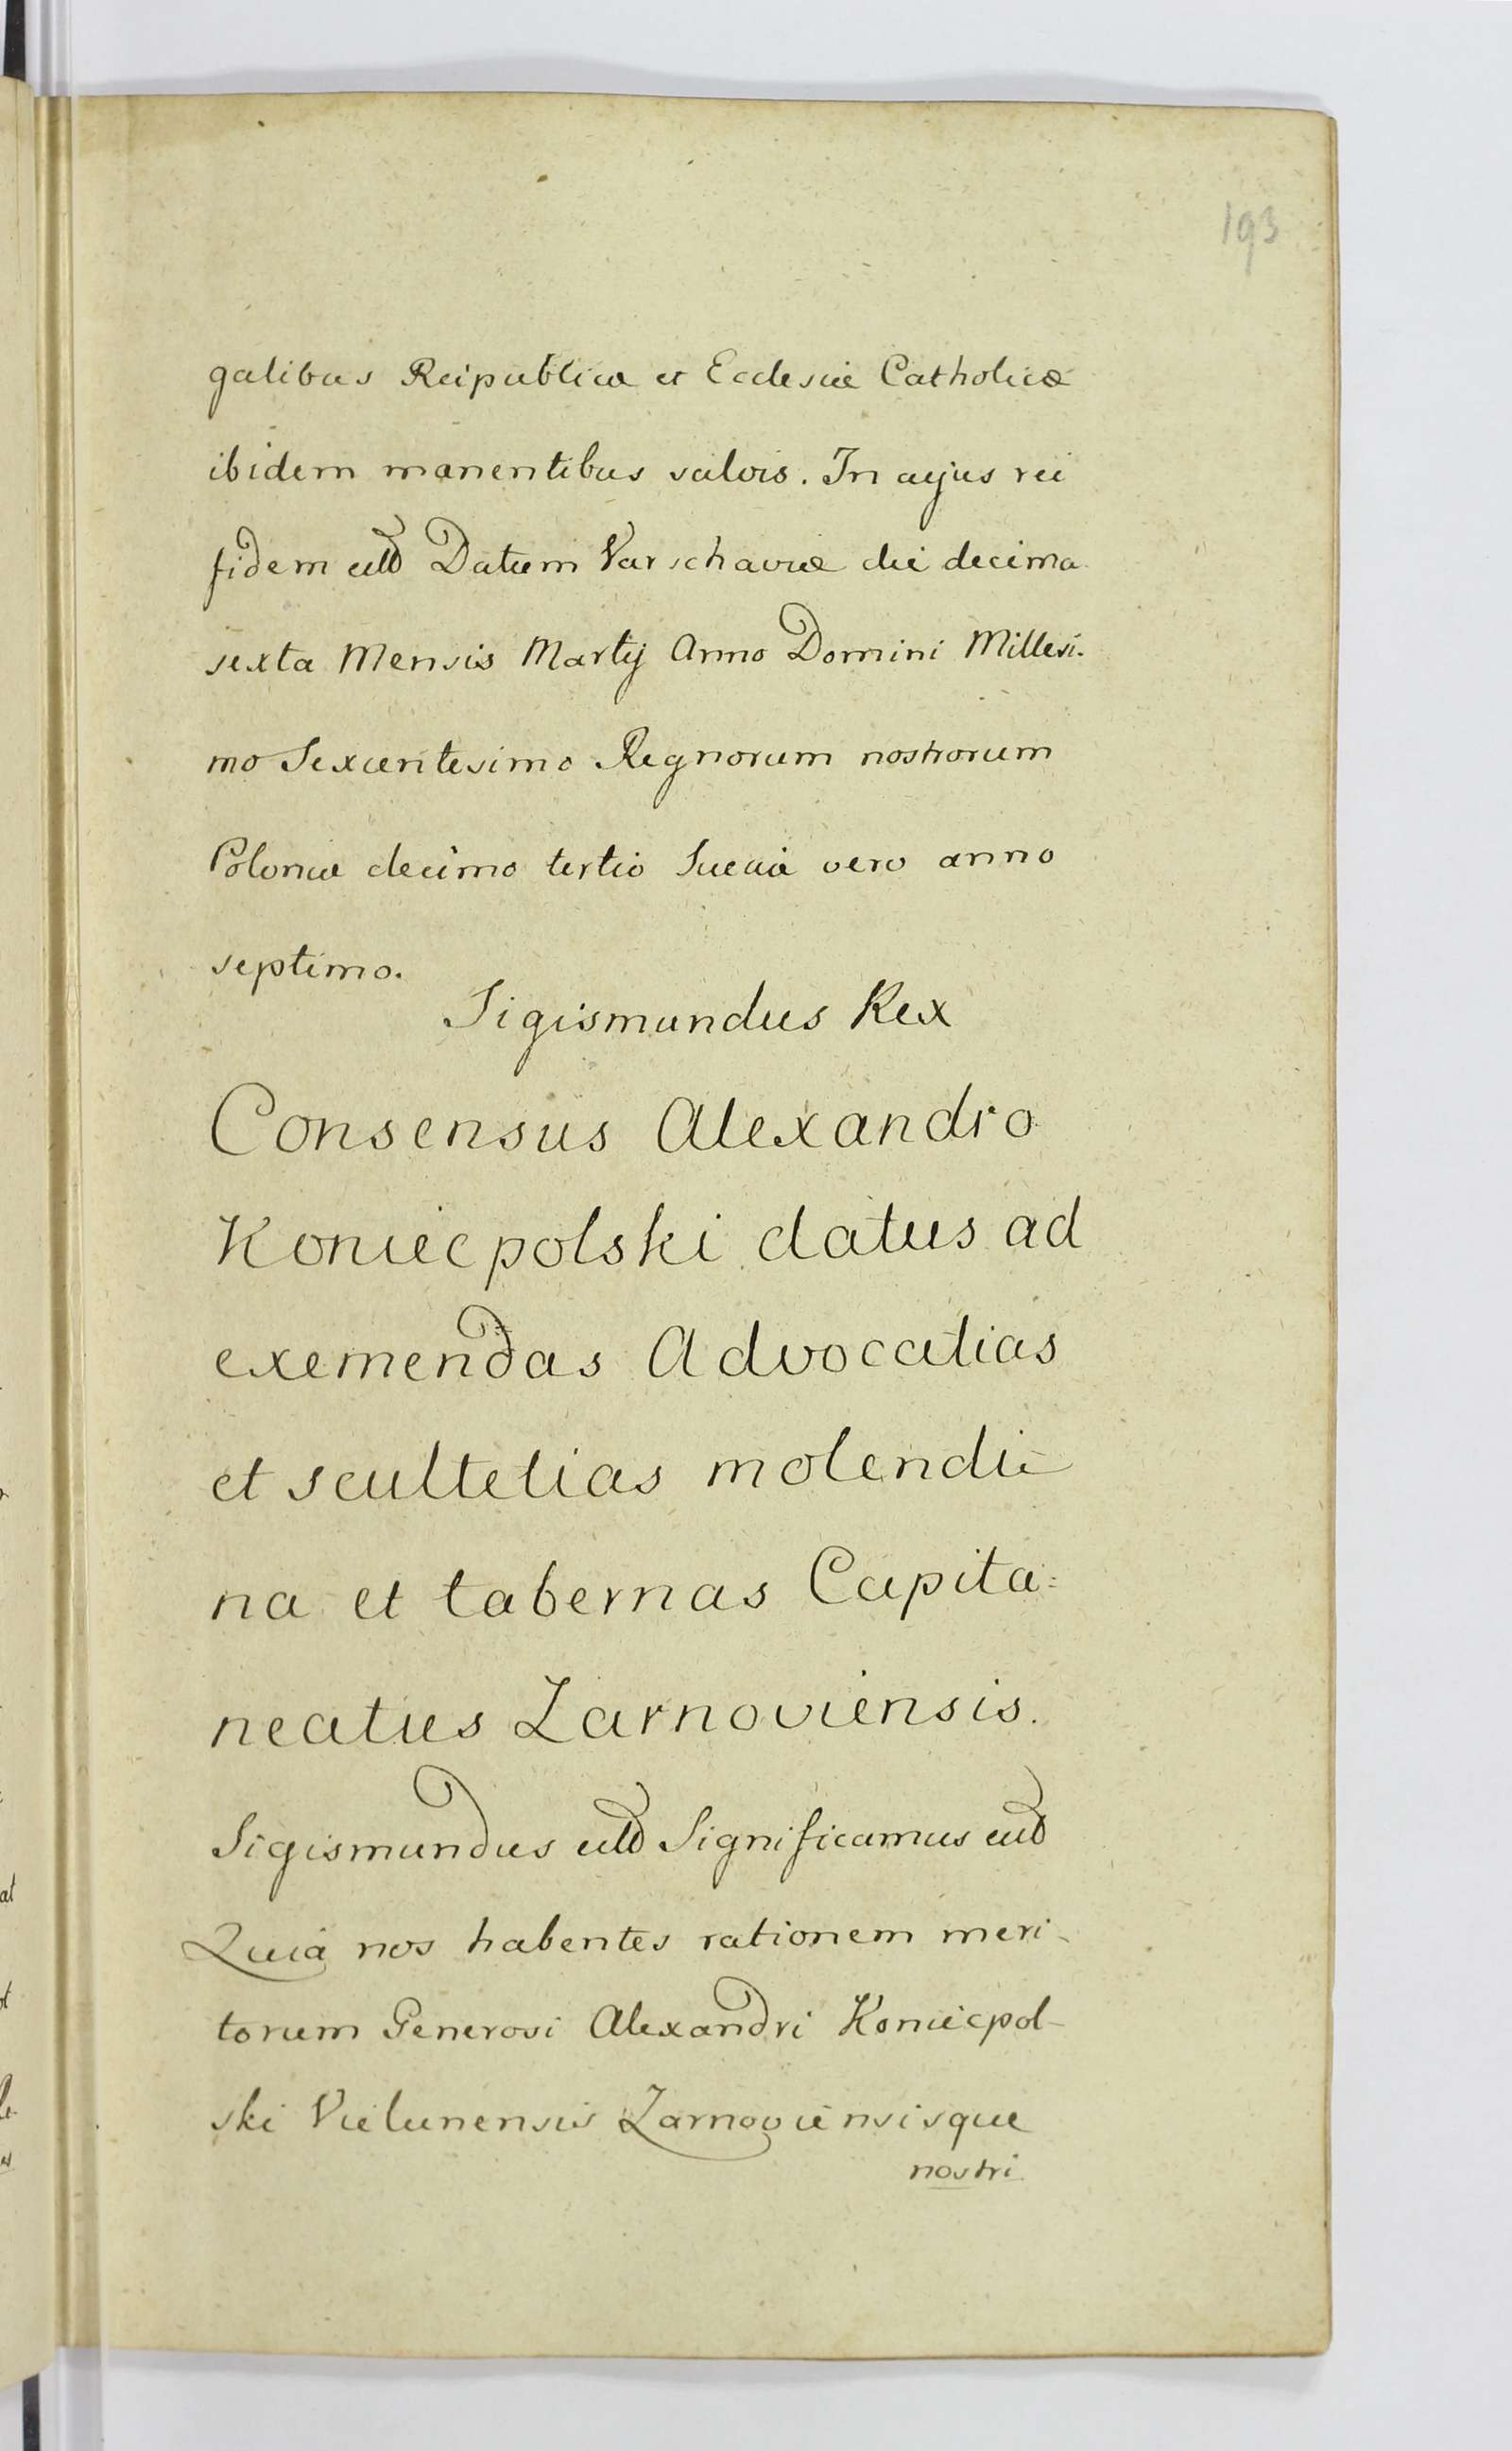 193
galibus Reipublicæ et Ecclesiæ Catholicæ
ibidem manentibus salvis. In cujus rei
fidem etc Datum Varschaviæ die decima
sexta Mensis Martij Anno Domini Millesi-
mo Sexcentesimo Regnorum nostrorum
Poloniæ decimo tertio Sueciæ vero anno
septimo.
Sigismundus Rex
Consensus Alexandro
Koniecpolski datus ad
exemendas Advocatias
et scultetias molendi-
na et tabernas Capita=
neatus Zarnoviensis.
Sigismundus etc Significamus etc
Quia nos habentes rationem meri-
torum Generosi Alexandri Koniecpol-
ski Vielunensis Zarnoviensisque
nostri